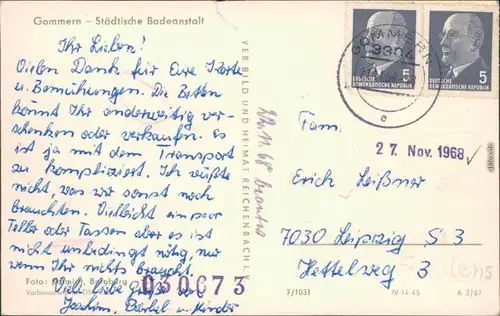 Gommern – Städtische Badeanstalt
Ihr Lieben!
Vielen Dank für Eure Karte
u. Bemühungen. Die Betten
könnt Ihr anderweitig ver-
schenken oder verkaufen. Es
ist ja mit dem Transport
zu kompliziert. Ich wüßte
nicht, was wir sonst noch
brauchten. Vielleicht ein paar
Teller oder Tassen aber es ist
nicht unbedingt nötig, nur
wenn Ihr nichts braucht.
Viele liebe Grüße von
Joachim, Bärbel u. Kinder
Foto:
030673
VERBILD UND HEIMAT REICHENBACH
24.11.68
GOMMERN
3304
e
5
DEUTSCHE
DEMOKRATISCHE REPUBLIK
5
DEUTSCHE
DEMOKRATISCHE REPUBLIK
27. Nov. 1968
Fam.
Erich Leißner
7030 Leipzig S 3
Hettelweg 3
7/1031
IV-14-45
A 3/67